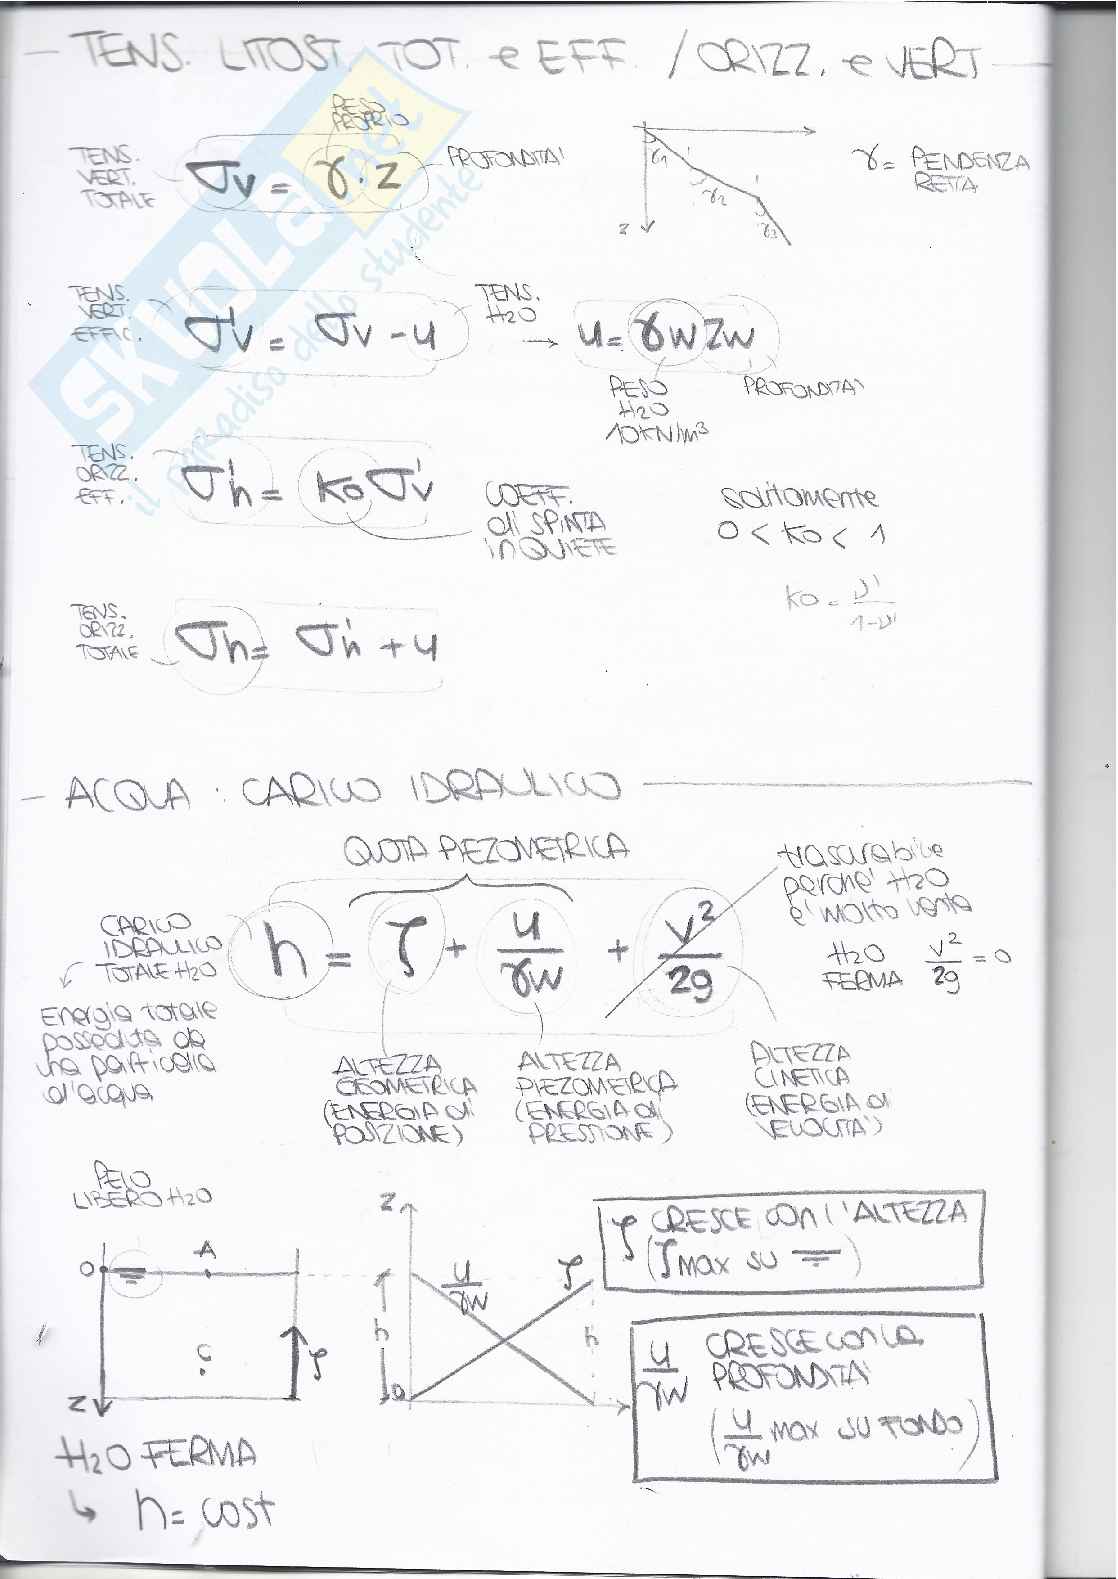 - TENS. LITOST. TOT. e EFF. / ORIZZ. e VERT
PESO
PROPRIO
TENS.
VERT.
TOTALE
σv = γ · z
PROFONDITA'
γ1
γ2
γ3
z
γ = PENDENZA
RETTA
TENS.
VERT.
EFFIC.
σ'v = σv - u
TENS.
H2O
→ u = γw zw
PESO
H2O
10 KN/m³
PROFONDITA'
TENS.
ORIZZ.
EFF.
σ'h = ko σ'v
COEFF.
di SPINTA
in QUIETE
solitamente
0 < ko < 1
ko = ν' / 1-ν'
TENS.
ORIZZ.
TOTALE
σh = σ'h + u
SKUOLA.net
il paradiso dello studente
- ACQUA : CARICO IDRAULICO
QUOTA PIEZOMETRICA
trascurabile
perche' H2O
e' molto lenta
H2O
FERMA
v²/2g = 0
CARICO
IDRAULICO
TOTALE H2O
h = ζ + u/γw + v²/2g
Energia totale
posseduta da
una particella
d'acqua
ALTEZZA
GEOMETRICA
(ENERGIA di
POSIZIONE)
ALTEZZA
PIEZOMETRICA
(ENERGIA di
PRESSIONE)
ALTEZZA
CINETICA
(ENERGIA di
VELOCITA')
PELO
LIBERO H2O
O
A
C
ζ
z
z
u/γw
ζ
h
h
O
ζ CRESCE con l'ALTEZZA
(ζ max su
)
u/γw CRESCE con la
PROFONDITA'
(u/γw max su FONDO)
H2O FERMA
↳ h = cost